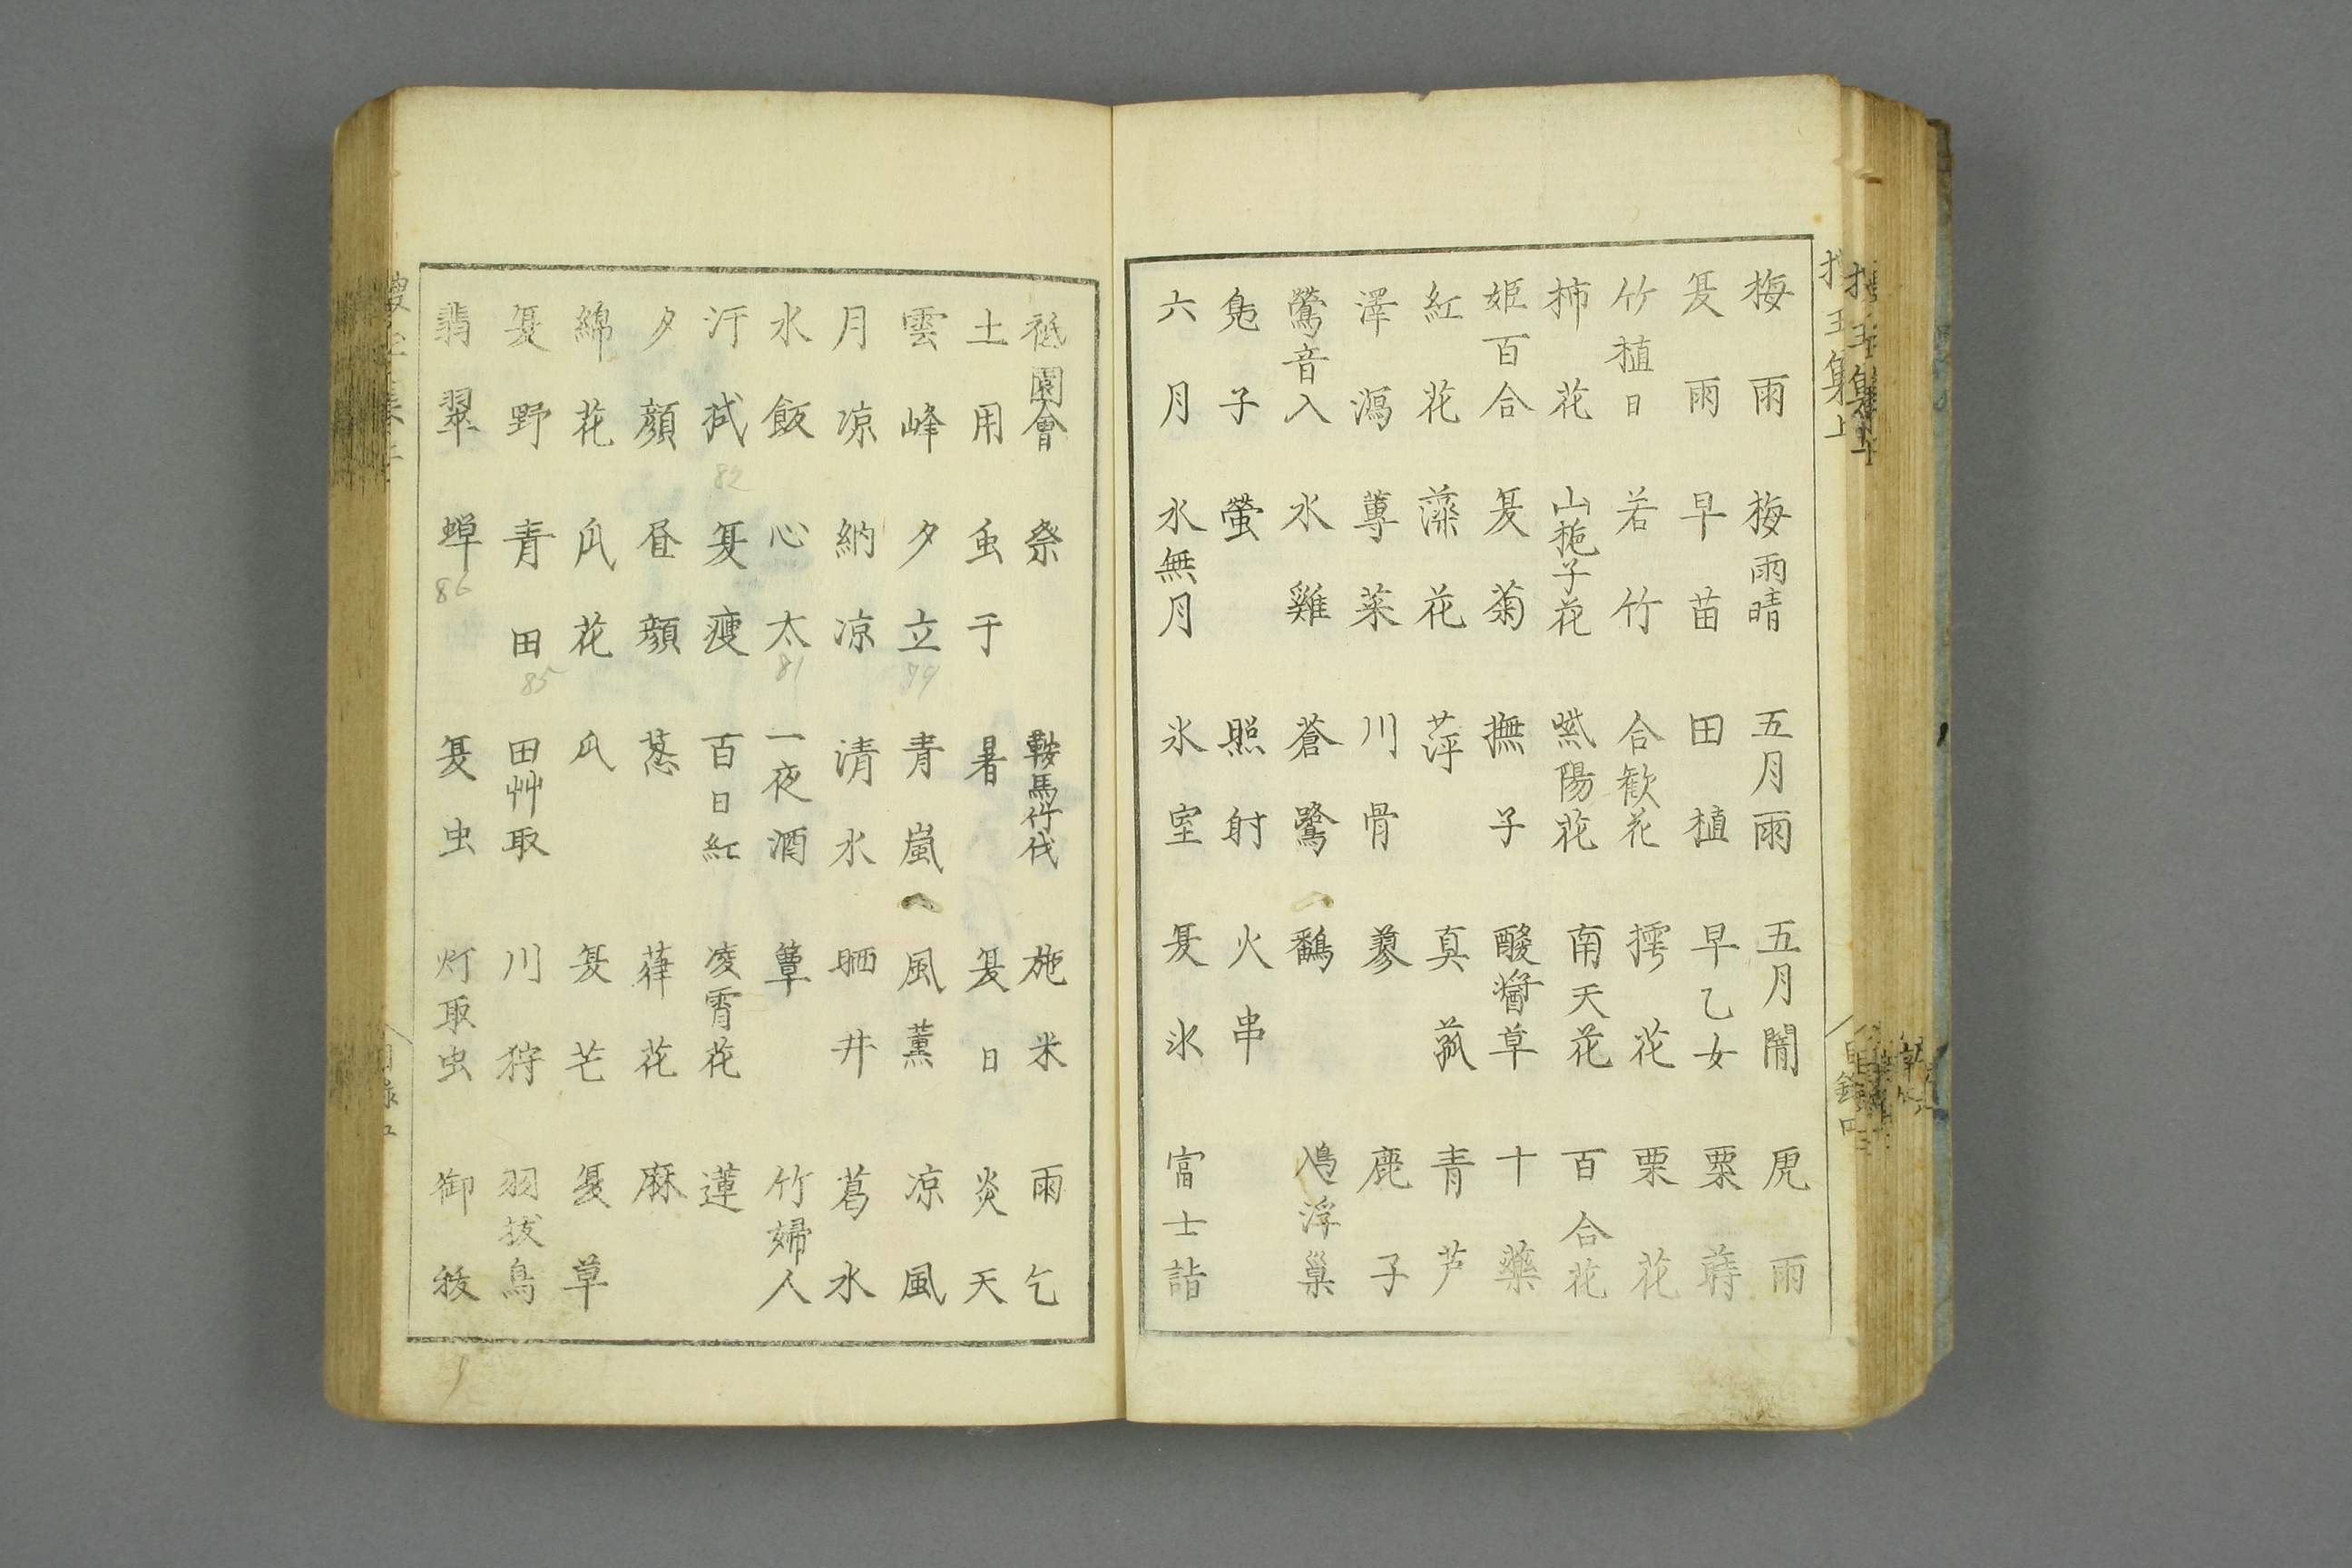 梅雨 梅雨晴 五月雨 五月闇 虎雨
夏雨 早苗 田植 早乙女 粟蒔
竹植日 若竹 合歓花 樗花 栗花
柿花 山梔子花 紫陽花 南天花 百合花
姫百合 夏菊 撫子 酸漿草 十藥
紅花 藻花 萍 真菰 青芦
澤瀉 蓴菜 川骨 蓼 鹿子
鶯音入 水雞 蒼鷺 鷭 鳰浮巢
鳧子 螢 照射 火串
六月 水無月 氷室 夏氷 富士詣
祗園會 祭 鞍馬竹伐 施米 雨乞
土用 虫干 暑 夏日 炎天
雲峰 夕立 青嵐 風薫 凉風
79
月凉 納凉 清水 晒井 葛水
水飯 心太 一夜酒 簟 竹婦人
81
汗拭 夏瘦 百日紅 凌霄花 蓮
82
夕顔 昼顔 葱 葎花 麻
綿花 瓜花 瓜 夏芒 夏草
夏野 青田 田艸取 川狩 羽拔鳥
85
翡翠 蝉 夏虫 灯取虫 御祓
86